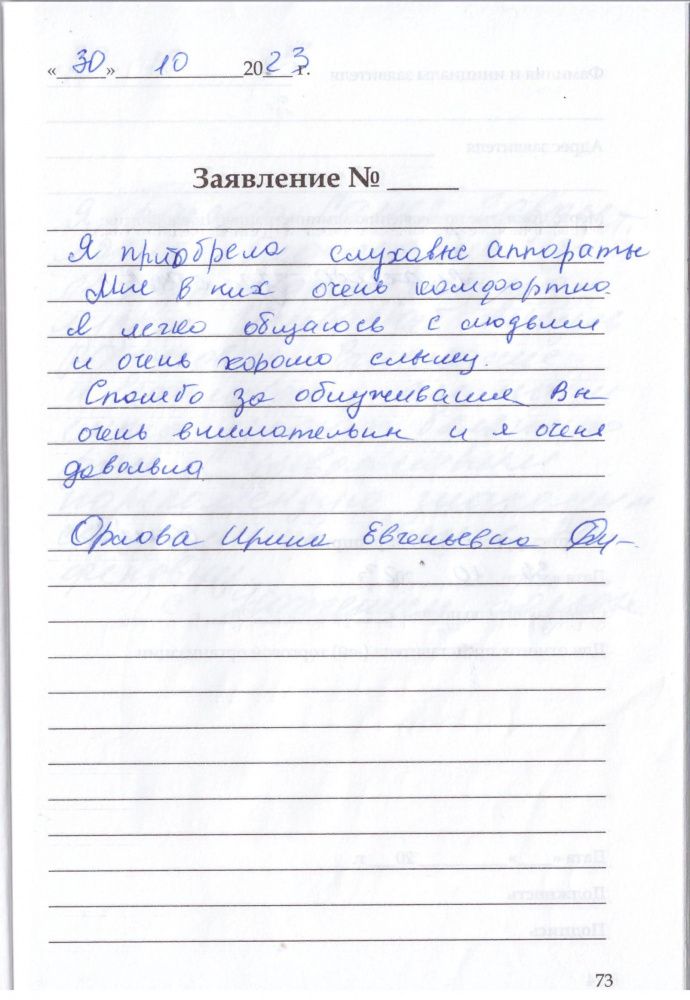 « 30 » 10 2023 г.
Заявление № ____
Я приобрела слуховые аппораты
Мне в них очень комфортно.
Я легко общаюсь с людьми
и очень хорошо слышу.
Спасибо за облуживания Вы
очень внимательны и я очень
довольна
Орлова Ирина Евгеньевна
73